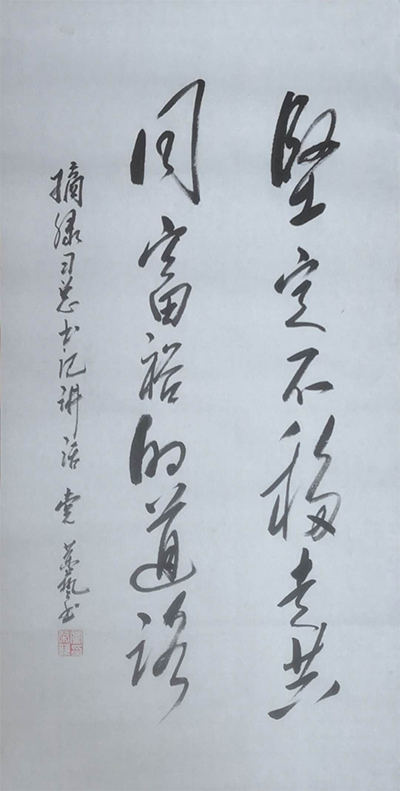 坚定不移走共
同富裕的道路
摘录习总书记讲话